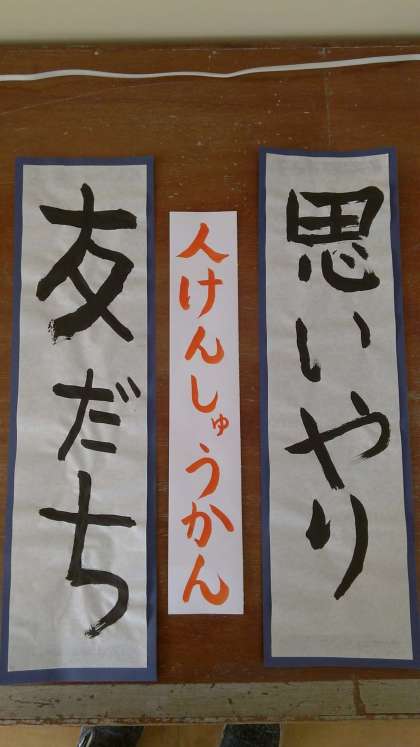 思いやり
人けんしゅうかん
友だち